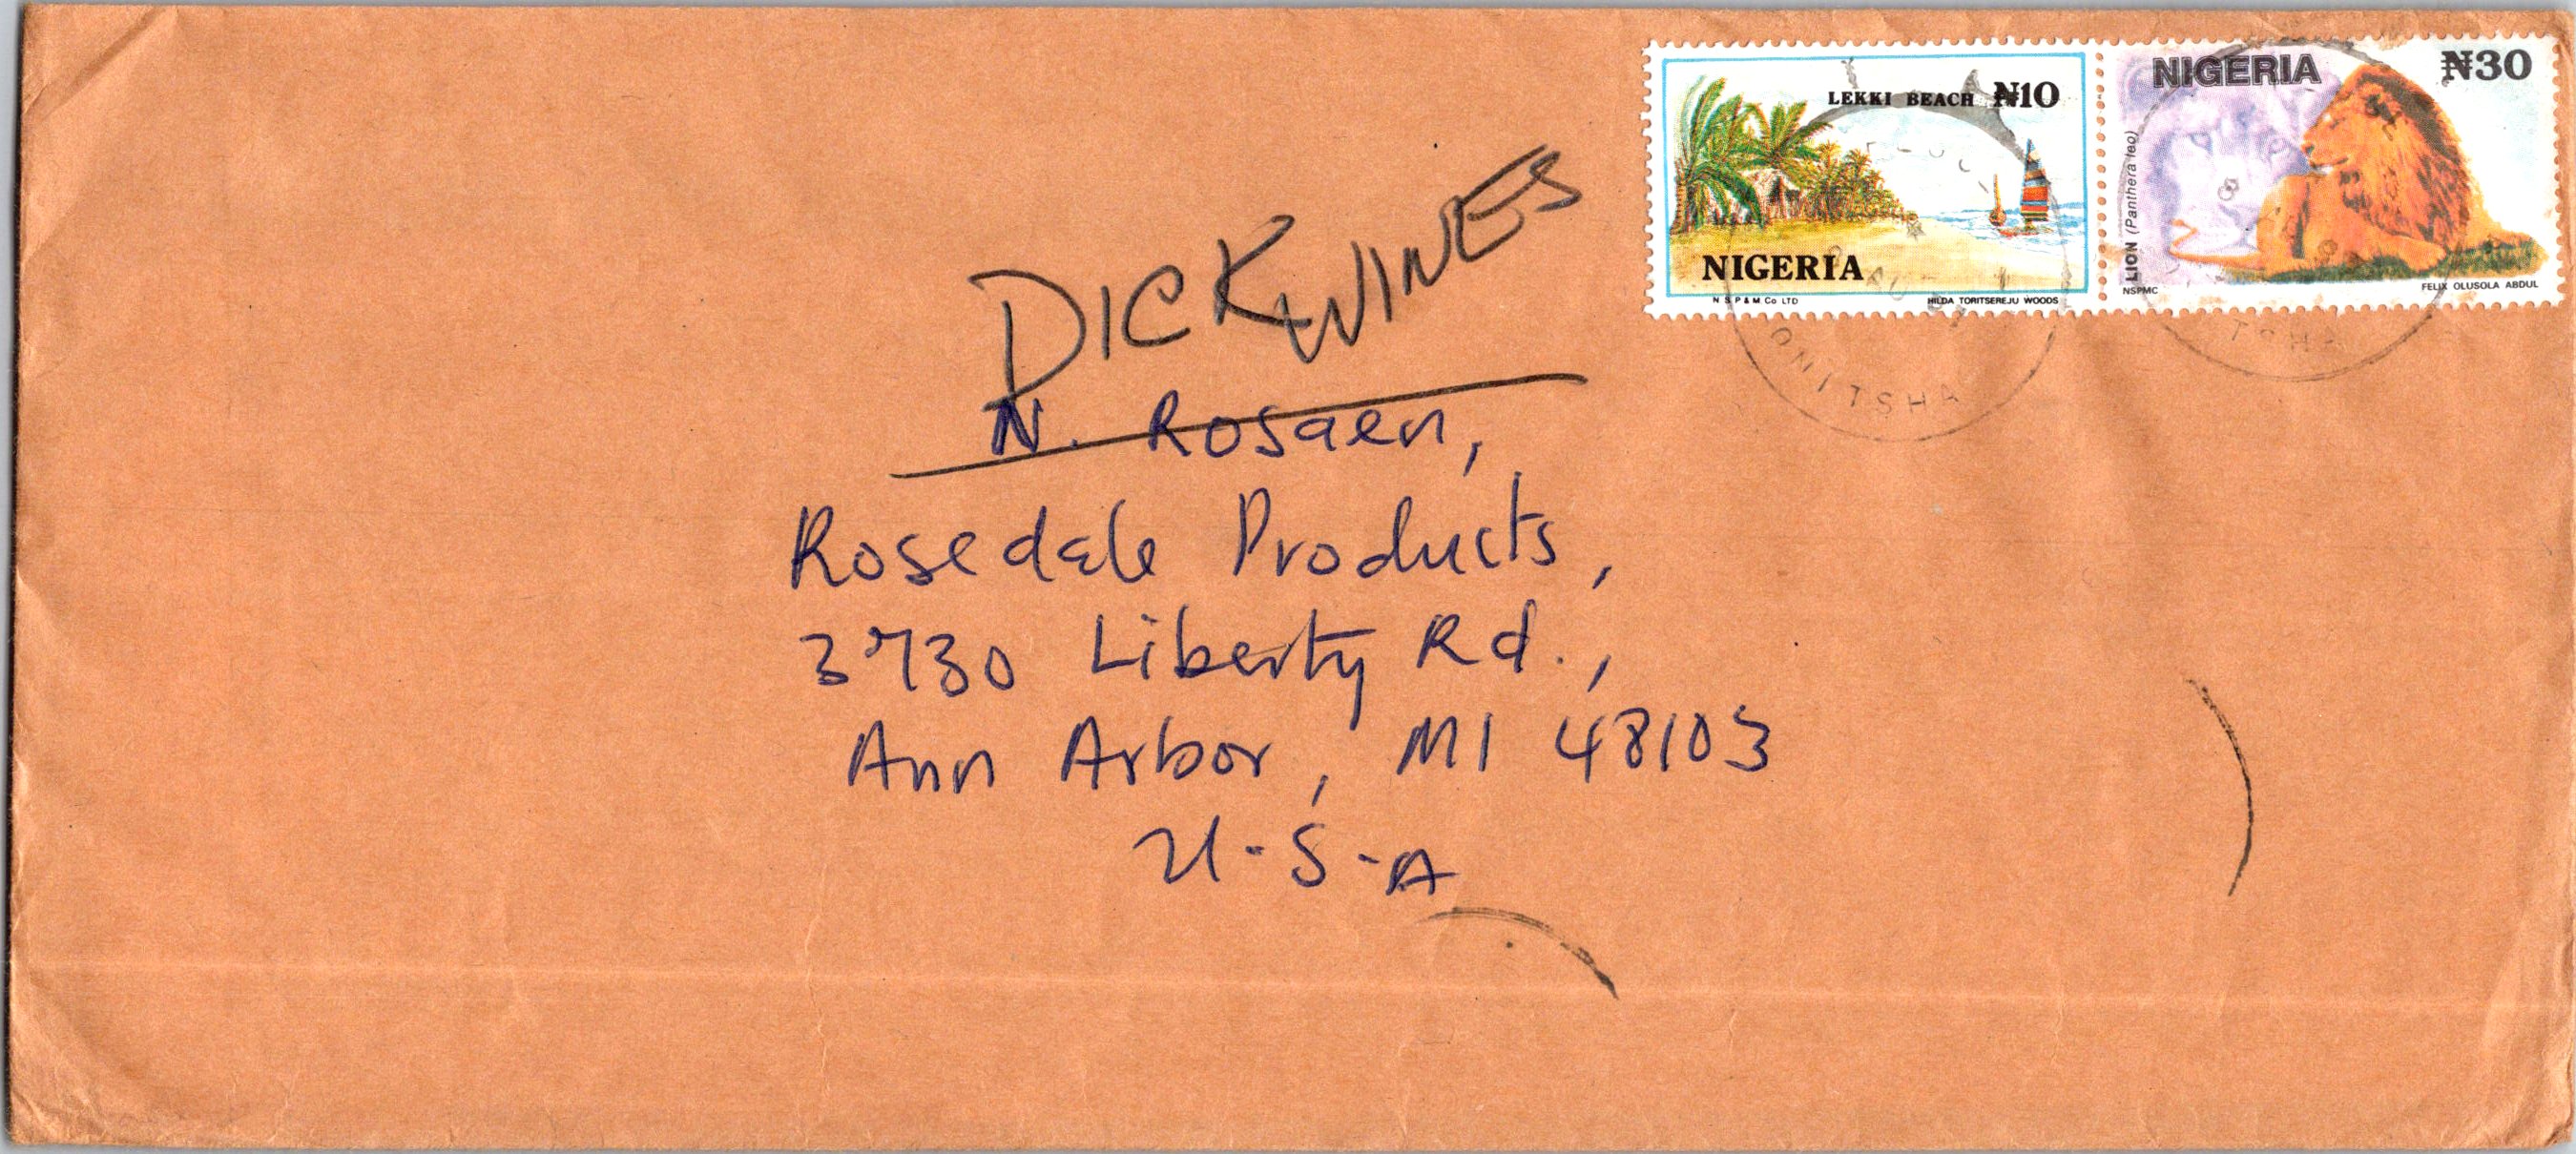 LEKKI BEACH ₦10
NIGERIA
N S P & M Co LTD
HILDA TORITSEREJU WOODS
NIGERIA
₦30
LION (Panthera leo)
NSPMC
FELIX OLUSOLA ABDUL
ONITSHA
TSHA
DICK WINES
N. Rosaen,
Rosedale Products,
3730 Liberty Rd.,
Ann Arbor, MI 48103
U-S-A